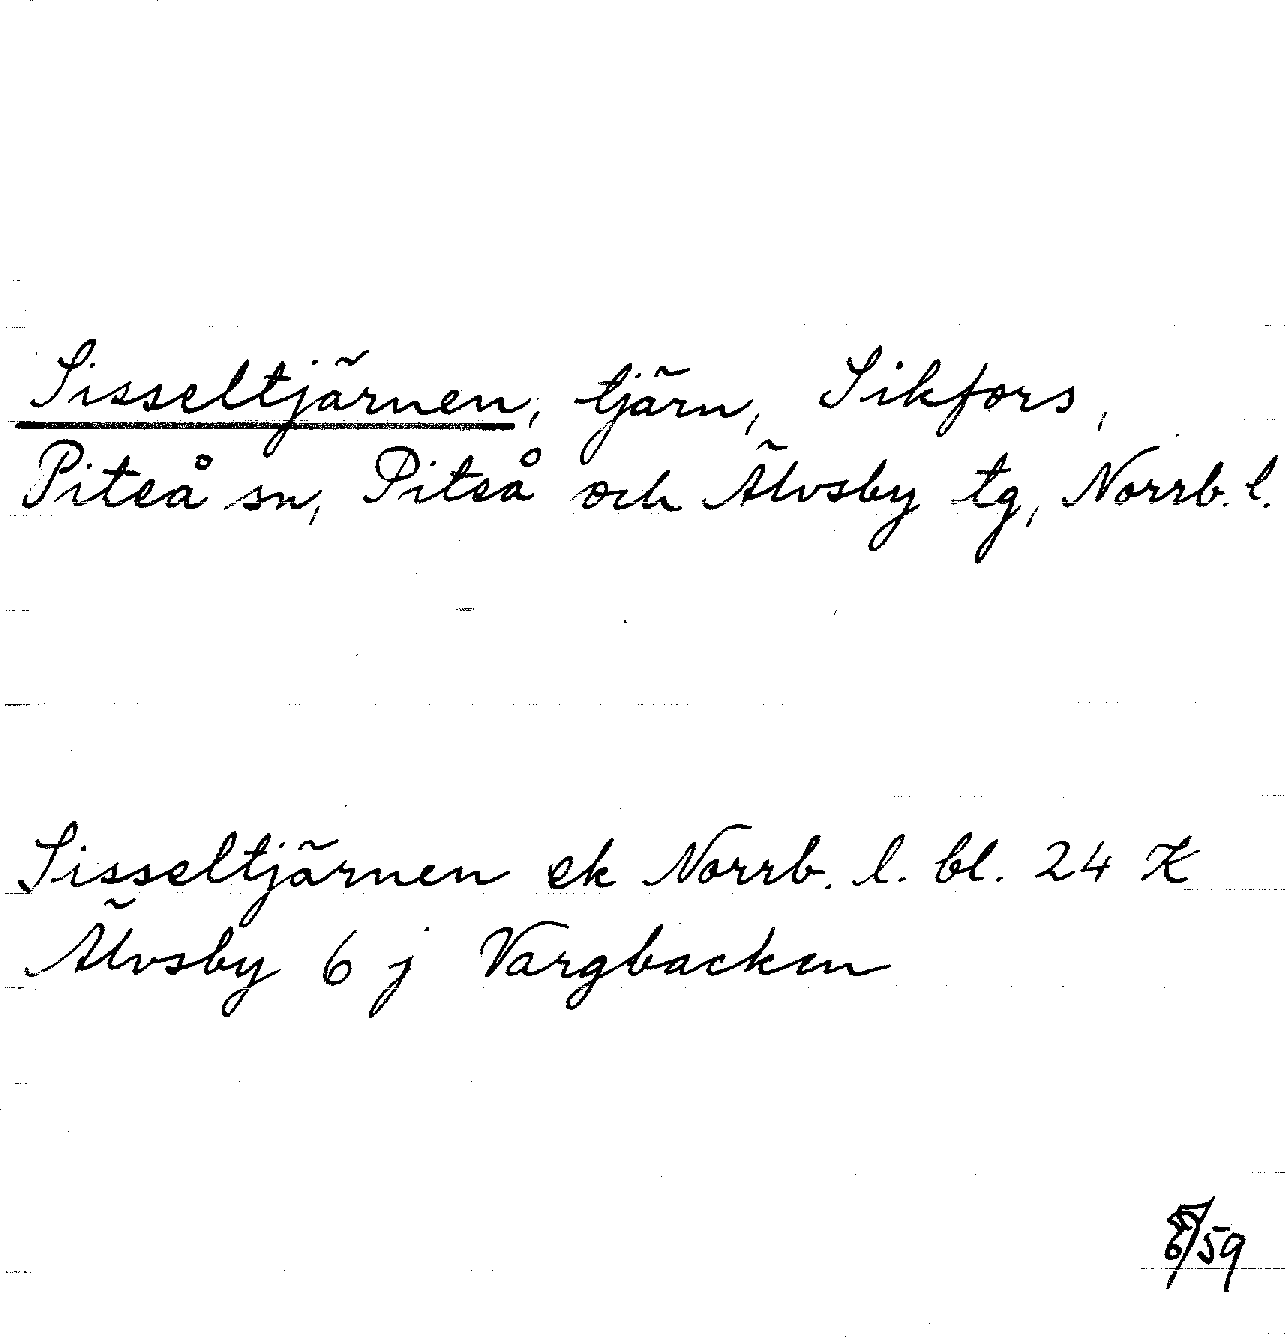 Sisseltjärnen, tjärn, Sikfors,
Piteå sn, Piteå och Älvsby tg, Norrb. l.
Sisseltjärnen ek Norrb. l. bl. 24 K
Älvsby 6 j Vargbacken
/59